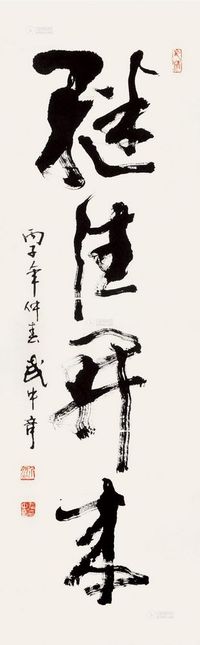 继往开来
丙子年仲春 武中奇